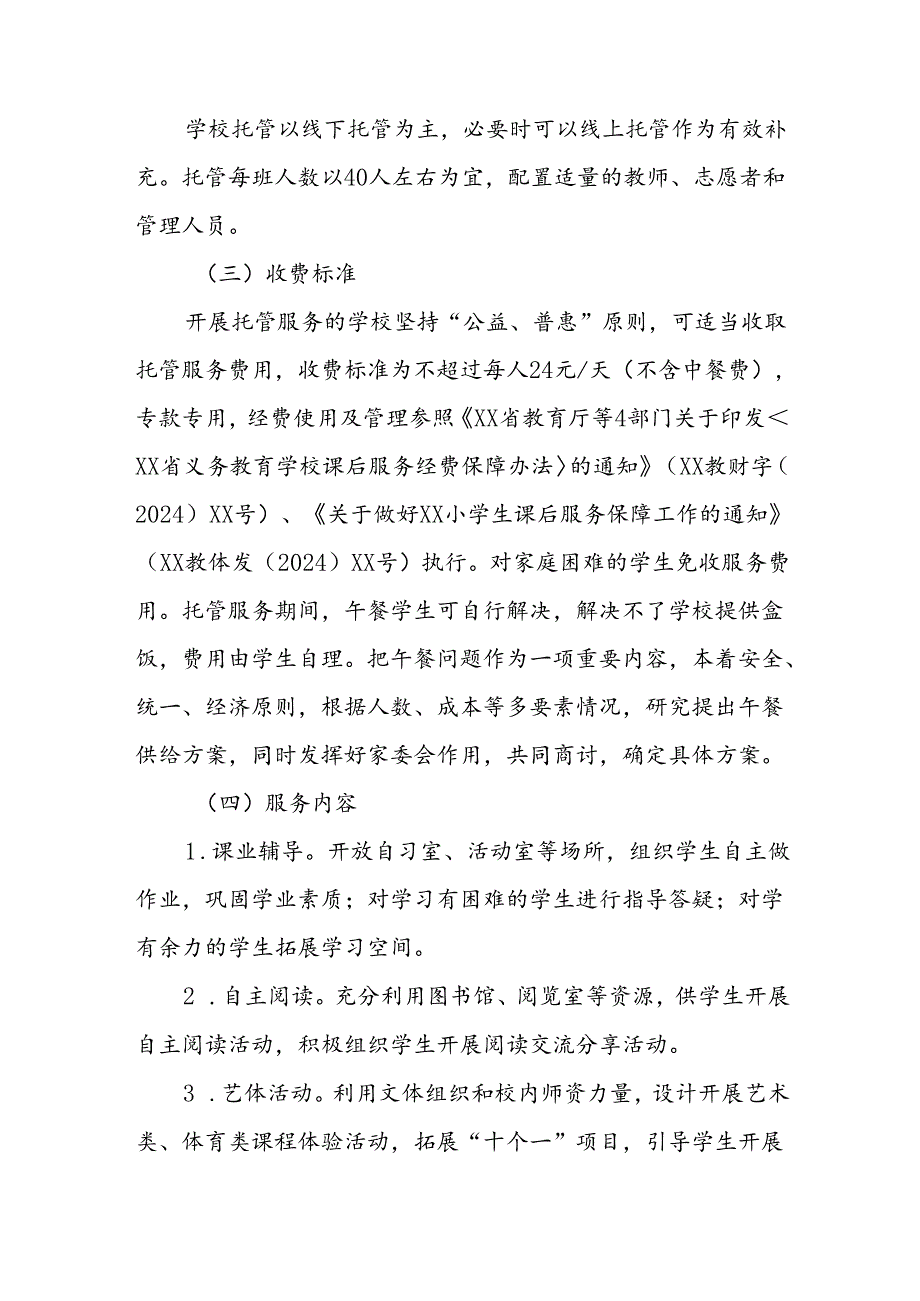 学校托管以线下托管为主，必要时可以线上托管作为有效补
充。托管每班人数以40人左右为宜，配置适量的教师、志愿者和
管理人员。
（三）收费标准
开展托管服务的学校坚持“公益、普惠”原则，可适当收取
托管服务费用，收费标准为不超过每人24元/天（不含中餐费），
专款专用，经费使用及管理参照《XX省教育厅等4部门关于印发＜
XX省义务教育学校课后服务经费保障办法〉的通知》（XX教财字（
2024）XX号）、《关于做好XX小学生课后服务保障工作的通知》
（XX教体发（2024）XX号）执行。对家庭困难的学生免收服务费
用。托管服务期间，午餐学生可自行解决，解决不了学校提供盒
饭，费用由学生自理。把午餐问题作为一项重要内容，本着安全、
统一、经济原则，根据人数、成本等多要素情况，研究提出午餐
供给方案，同时发挥好家委会作用，共同商讨，确定具体方案。
（四）服务内容
1.课业辅导。开放自习室、活动室等场所，组织学生自主做
作业，巩固学业素质；对学习有困难的学生进行指导答疑；对学
有余力的学生拓展学习空间。
2 .自主阅读。充分利用图书馆、阅览室等资源，供学生开展
自主阅读活动，积极组织学生开展阅读交流分享活动。
3 .艺体活动。利用文体组织和校内师资力量，设计开展艺术
类、体育类课程体验活动，拓展“十个一”项目，引导学生开展